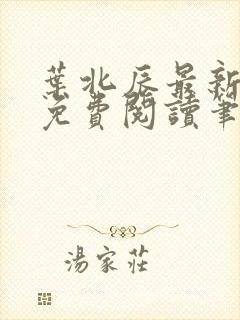 葉北辰最新
免費閱讀筆
湯家莊